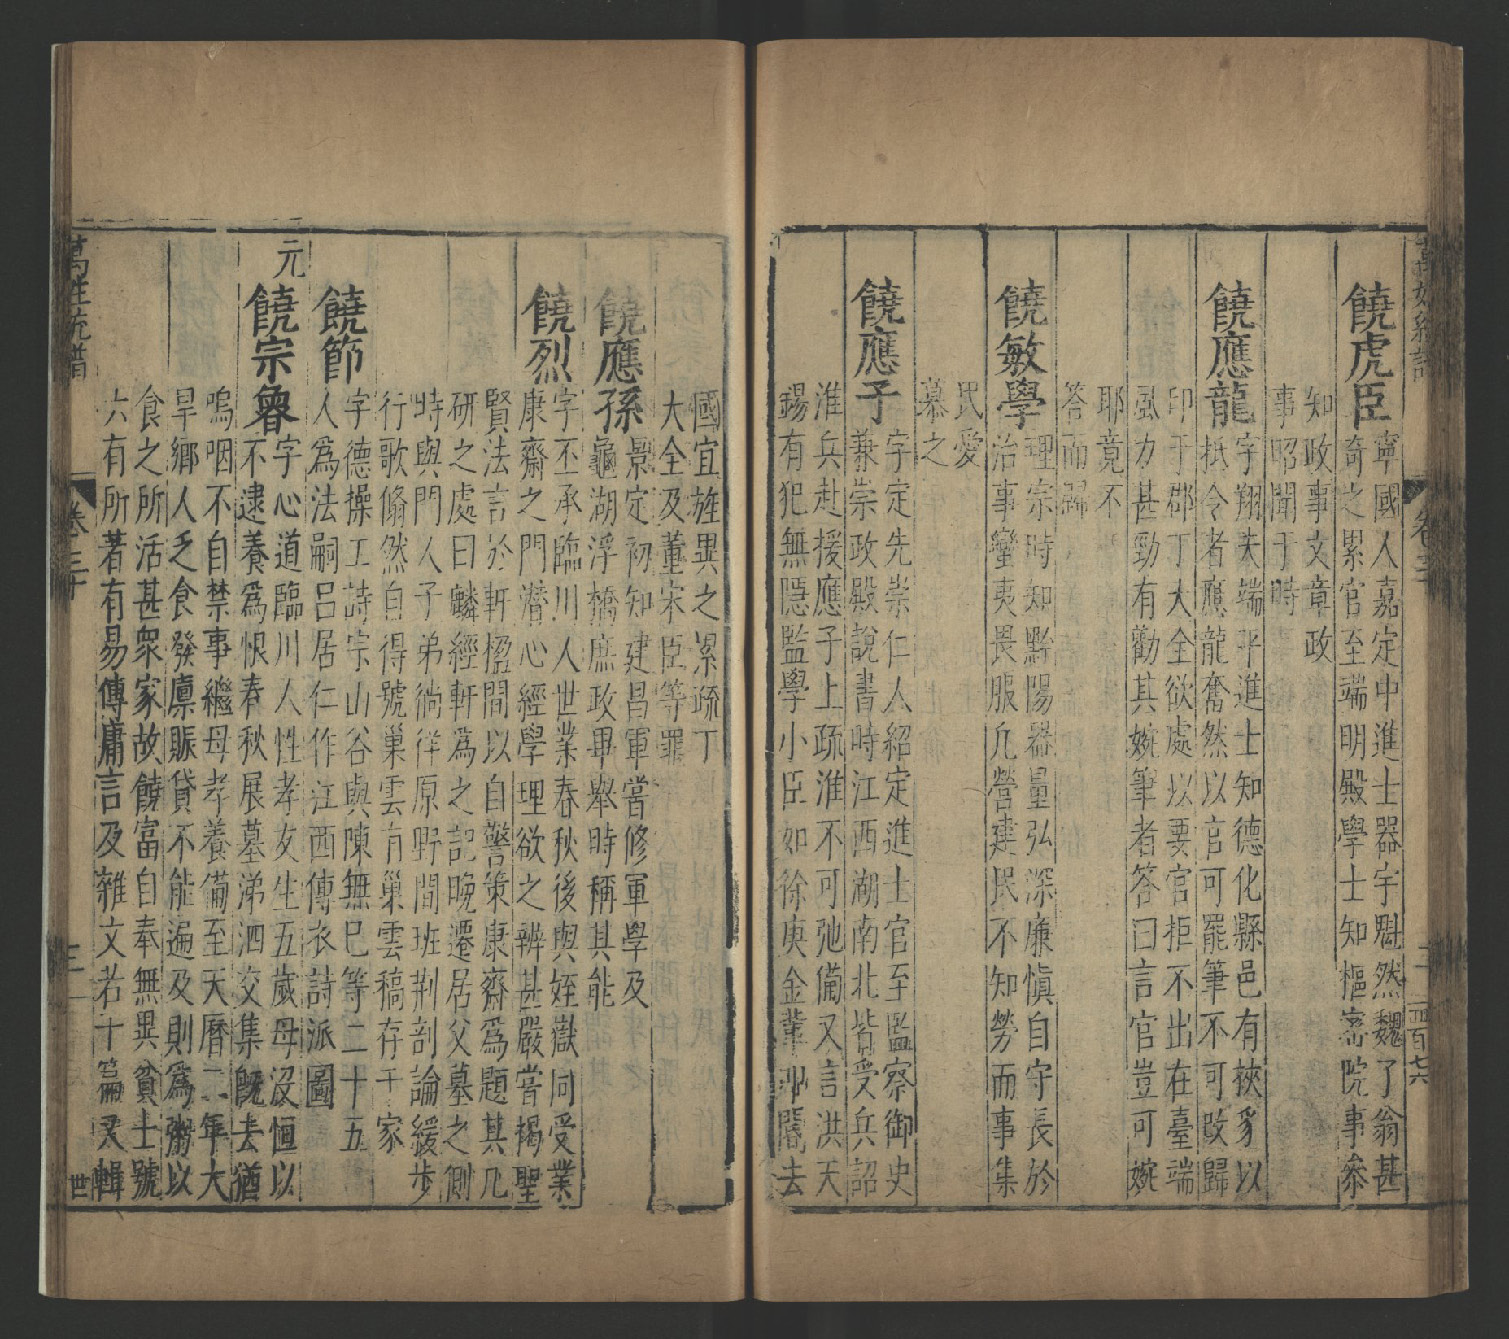 饒虎臣
寧國人嘉定中進士器宇魁然魏了翁甚
奇之累官至端明殿學士知樞密院事叅
知政事文章政
事昭聞于時
饒應龍
字翔夫端平進士知德化縣邑有挾豸以
抵令者應龍奮然以官可罷筆不可改歸
印于郡丁大全欲處以要官拒不出在臺端
彊力甚勁有勸其婉筆者答曰言官豈可婉
耶竟不
答而歸
饒敏學
理宗時知黔陽器量弘深廉慎自守長於
治事蠻夷畏服凢營建民不知勞而事集
民愛
慕之
饒應子
字定先崇仁人紹定進士官至監察御史
兼崇政殿說書時江西湖南北皆受兵詔
淮兵赴援應子上疏淮不可弛備又言洪天
錫有犯無隱監學小臣如徐庚金葦卭閣去
國宜旌異之累疏丁
大全及董宋臣等罪
饒應孫
景定初知建昌軍嘗修軍學及
龜湖浮橋庶政畢舉時稱其能
饒烈
字丕承臨川人世業春秋後與姪嶽同受業
康齋之門潛心經學理欲之辨甚嚴嘗揭聖
賢法言於軒楹間以自警策康齋爲題其凢
研之處曰麟經軒爲之記晚遷居父墓之側
時與門人子弟徜徉原野間班荆剖論緩步
行歌翛然自得號巢雲有巢雲稿存于家
饒節
字德操工詩宗山谷與陳無巳等二十五
人爲法嗣呂居仁作江西傳衣詩派圖
元
饒宗魯
字心道臨川人性孝友生五歲母沒恒以
不逮養爲恨春秋展墓涕泗交集旣去猶
嗚咽不自禁事繼母孝養備至天曆二年大
旱鄉人乏食發廩賑貸不能遍及則爲粥以
食之所活甚衆家故饒富自奉無異貧士號
六有所著有易傳庸言及雜文若干篇又輯
萬姓統譜
卷三十
三
世